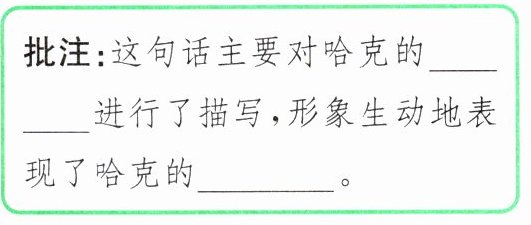 批注:这句话主要对哈克的____
____进行了描写,形象生动地表
现了哈克的________。